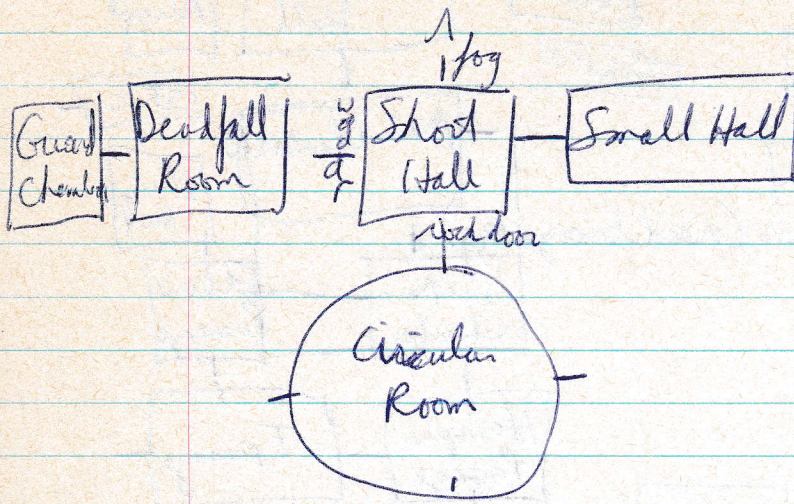 fog
Guard
Chamber
Deadfall
Room
Short
Hall
Small Hall
rock door
Circular
Room